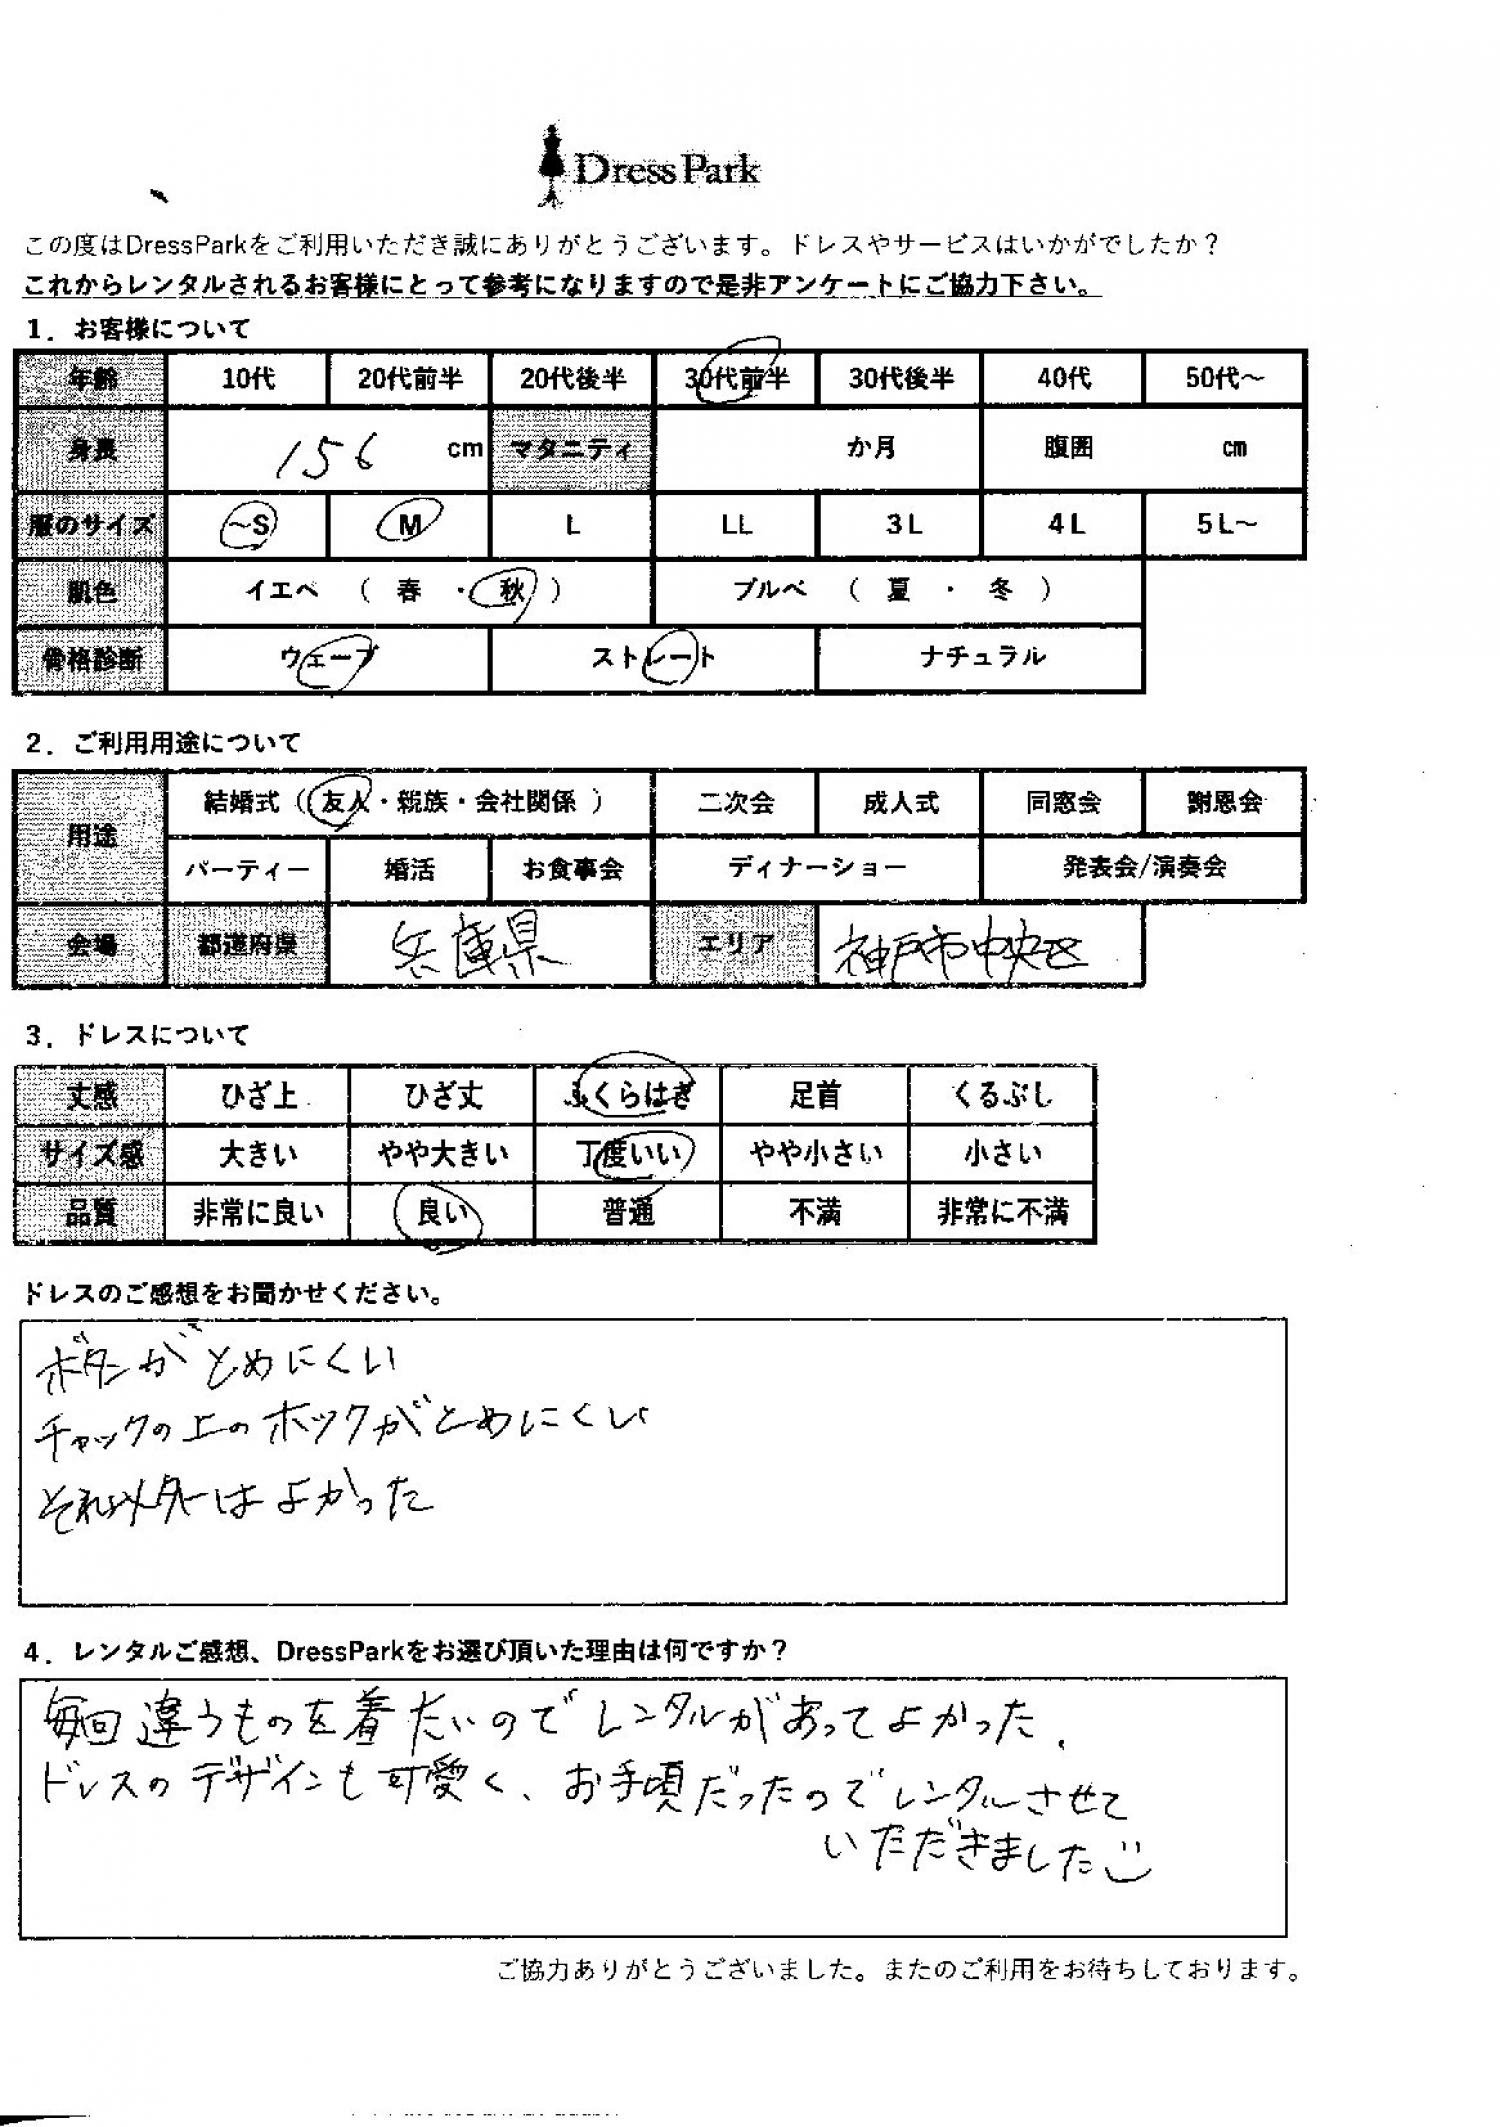 Dress Park
この度はDressParkをご利用いただき誠にありがとうございます。ドレスやサービスはいかがでしたか？
これからレンタルされるお客様にとって参考になりますので是非アンケートにご協力下さい。
1．お客様について
年齢 10代 20代前半 20代後半 30代前半 30代後半 40代 50代～
身長 156 cm マタニティ か月 腹囲 cm
服のサイズ ～S M L LL 3L 4L 5L～
肌色 イエベ （ 春 ・ 秋 ） ブルベ （ 夏 ・ 冬 ）
骨格診断 ウェーブ ストレート ナチュラル
2．ご利用用途について
用途 結婚式（ 友人・親族・会社関係 ） 二次会 成人式 同窓会 謝恩会
パーティー 婚活 お食事会 ディナーショー 発表会/演奏会
会場 都道府県 兵庫県 エリア 神戸市中央区
3．ドレスについて
丈感 ひざ上 ひざ丈 ふくらはぎ 足首 くるぶし
サイズ感 大きい やや大きい 丁度いい やや小さい 小さい
品質 非常に良い 良い 普通 不満 非常に不満
ドレスのご感想をお聞かせください。
ボタンがとめにくい
チャックの上のホックがとめにくい
それ以外はよかった
4．レンタルご感想、DressParkをお選び頂いた理由は何ですか？
毎回違うものを着たいのでレンタルがあってよかった。
ドレスのデザインも可愛く、お手頃だったのでレンタルさせて
いただきました
ご協力ありがとうございました。またのご利用をお待ちしております。